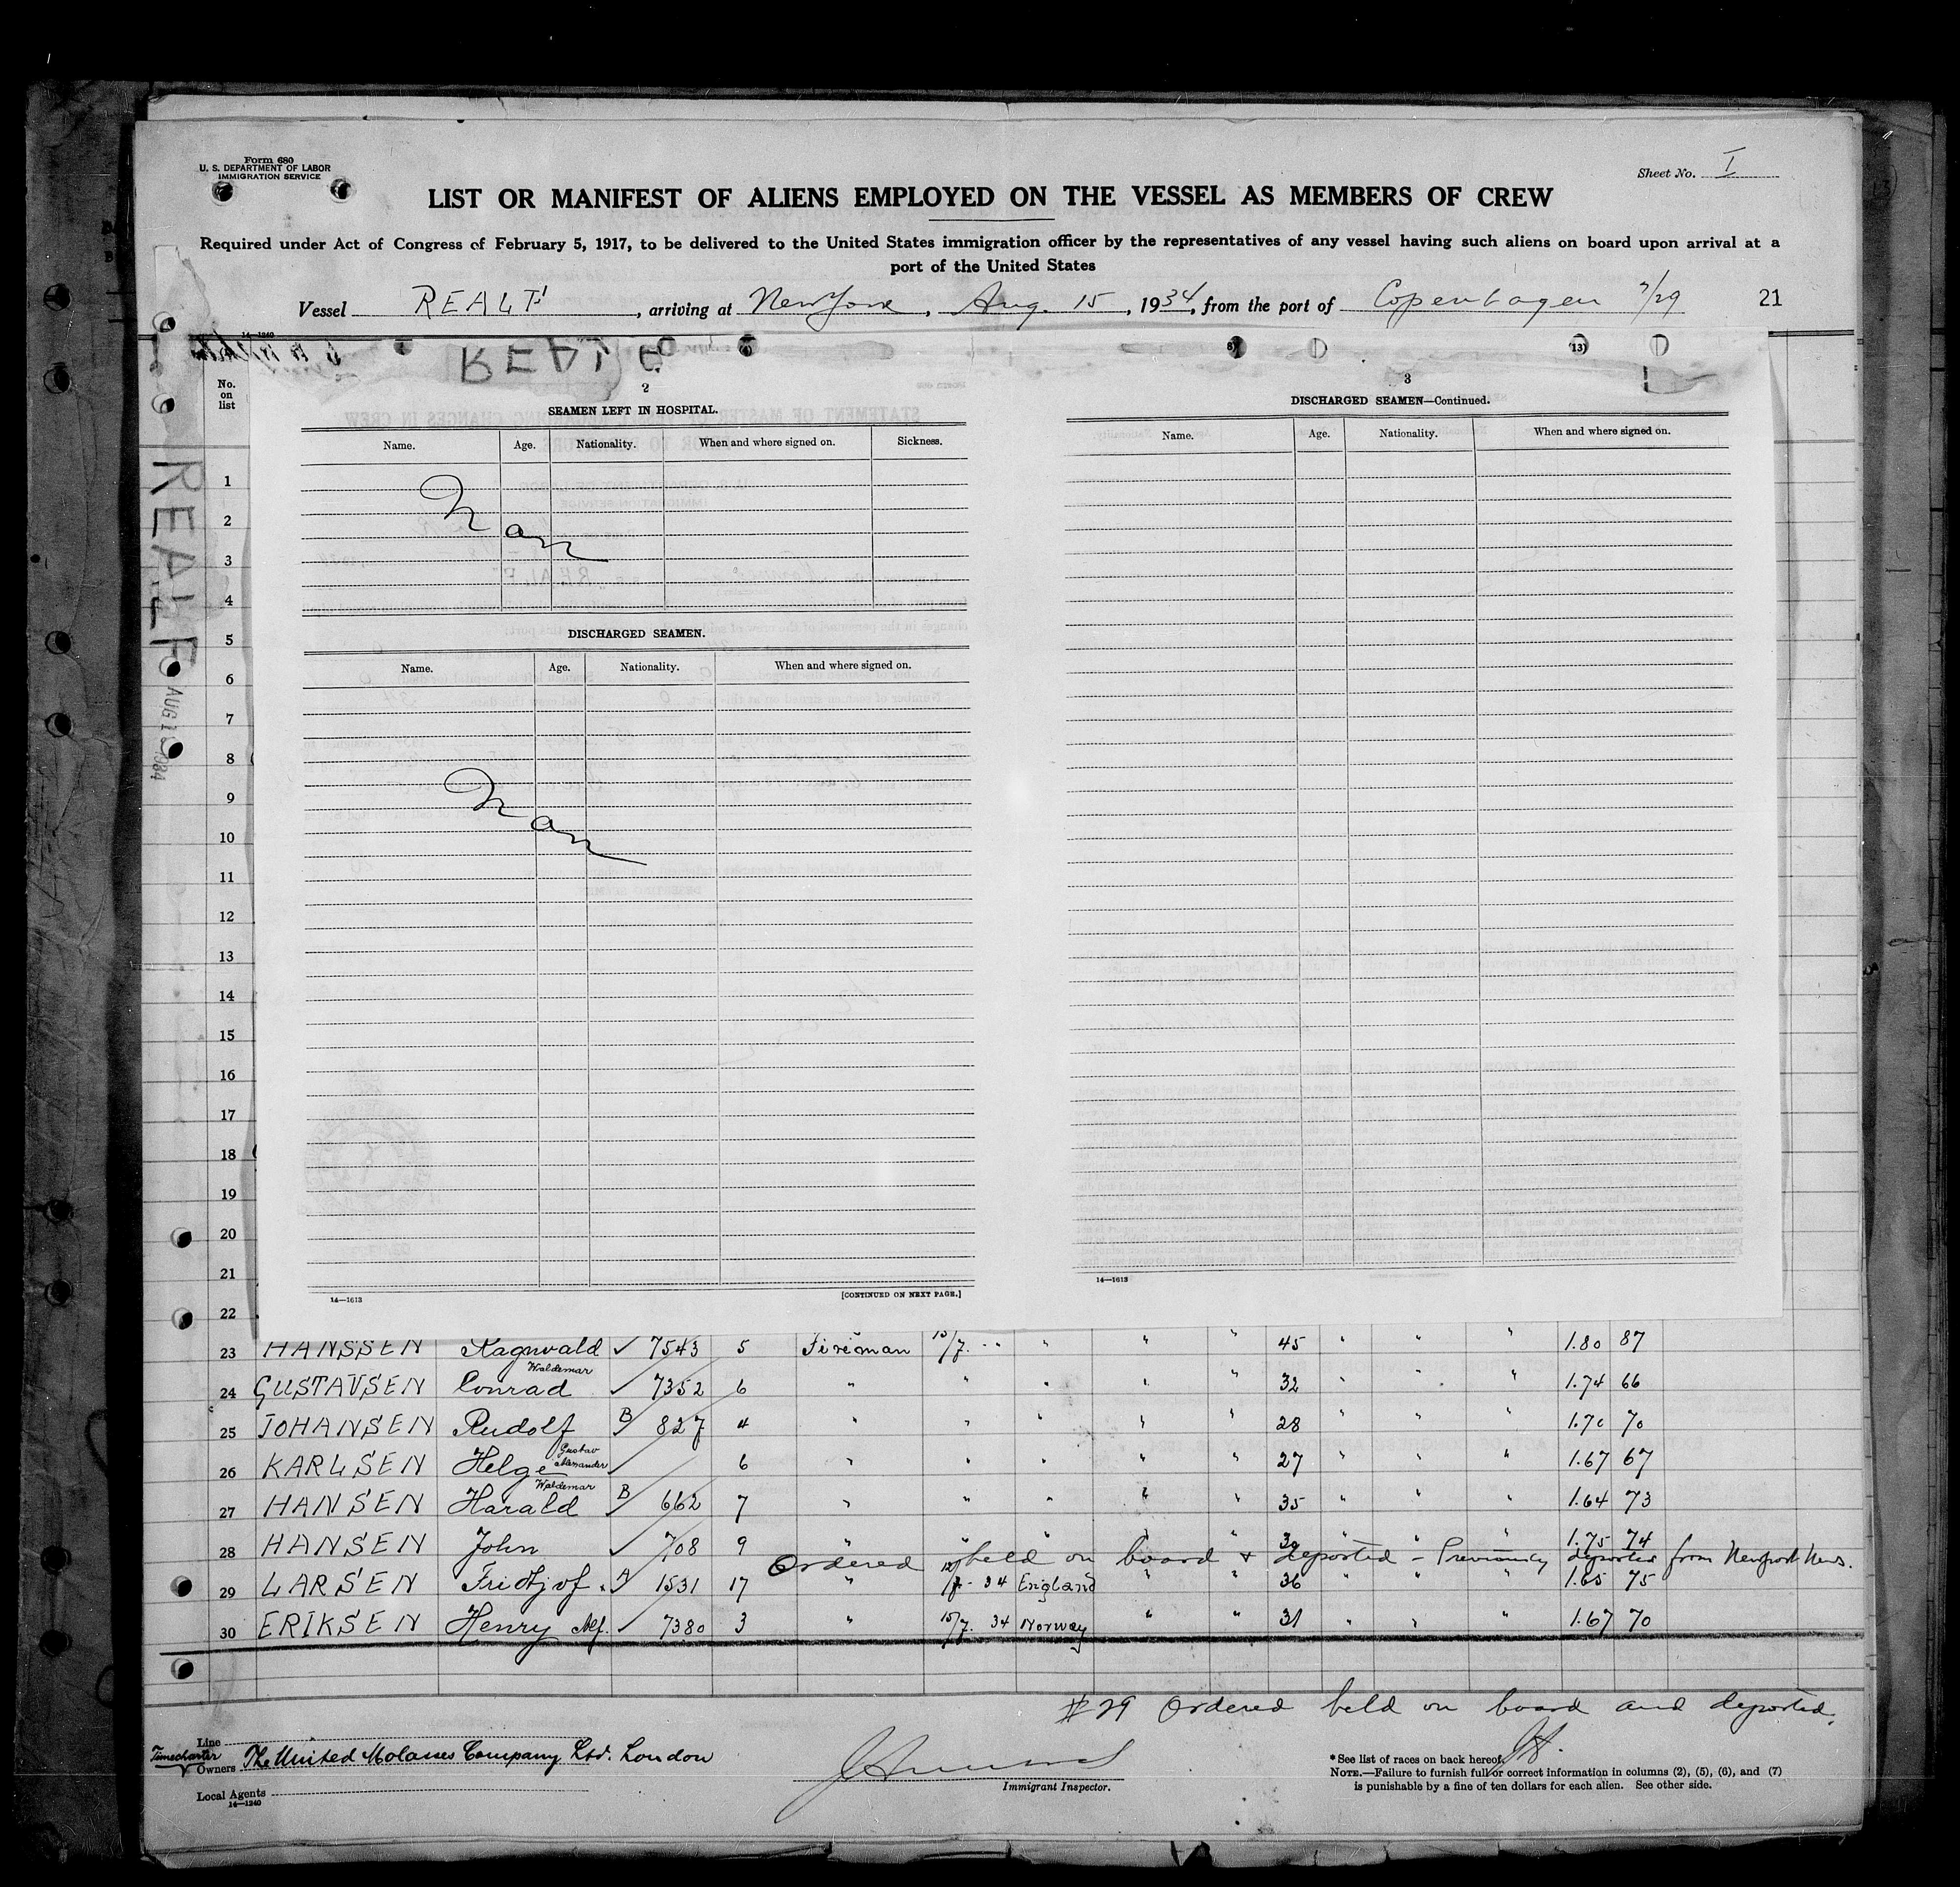 Form 680
U. S. DEPARTMENT OF LABOR
IMMIGRATION SERVICE
Sheet No. I
LIST OR MANIFEST OF ALIENS EMPLOYED ON THE VESSEL AS MEMBERS OF CREW
Required under Act of Congress of February 5, 1917, to be delivered to the United States immigration officer by the representatives of any vessel having such aliens on board upon arrival at a
port of the United States
Vessel REALF, arriving at New York, Aug. 15, 1934, from the port of Copenhagen 7/29 21
14—1240
No. on list
REALF
AUG 1 1934
2
SEAMEN LEFT IN HOSPITAL.
Name. Age. Nationality. When and where signed on. Sickness.
Nan
DISCHARGED SEAMEN.
Name. Age. Nationality. When and where signed on.
Nan
14—1613
[CONTINUED ON NEXT PAGE.]
3
DISCHARGED SEAMEN—Continued.
Name. Age. Nationality. When and where signed on.
14—1613
1
2
3
4
5
6
7
8
9
10
11
12
13
14
15
16
17
18
19
20
21
22
23 HANSSEN Ragnvald ✓ 7543 5 Fireman 15/7 " " " " 45 " " " 1.80 87
24 GUSTAVSEN Conrad Waldemar ✓ 7352 6 " " " " " 32 " " " 1.74 66
25 JOHANSEN Rudolf B ✓ 827 4 " " " " " 28 " " " 1.70 70
26 KARLSEN Helge Gustav Alexander ✓ 6 " " " " " 27 " " " 1.67 67
27 HANSEN Harald Waldemar B ✓ 662 7 " " " " " 35 " " " 1.64 73
28 HANSEN John ✓ 708 9 " " " " " " " " 1.75 74
Ordered held on board + deported - Previously deported from Newport News.
29 LARSEN Fridtjof A ✓ 1531 17 " 34 England " " 36 " " " 1.65 75
30 ERIKSEN Henry Alf. ✓ 7380 3 " 15/7. 34 Norway " " 31 " " " 1.67 70
#29 Ordered held on board and deported.
Line
Timecharter
Owners The United Molasses Company Ltd. London
Local Agents
14—1240
Immigrant Inspector.
*See list of races on back hereof.
NOTE.—Failure to furnish full or correct information in columns (2), (5), (6), and (7)
is punishable by a fine of ten dollars for each alien. See other side.